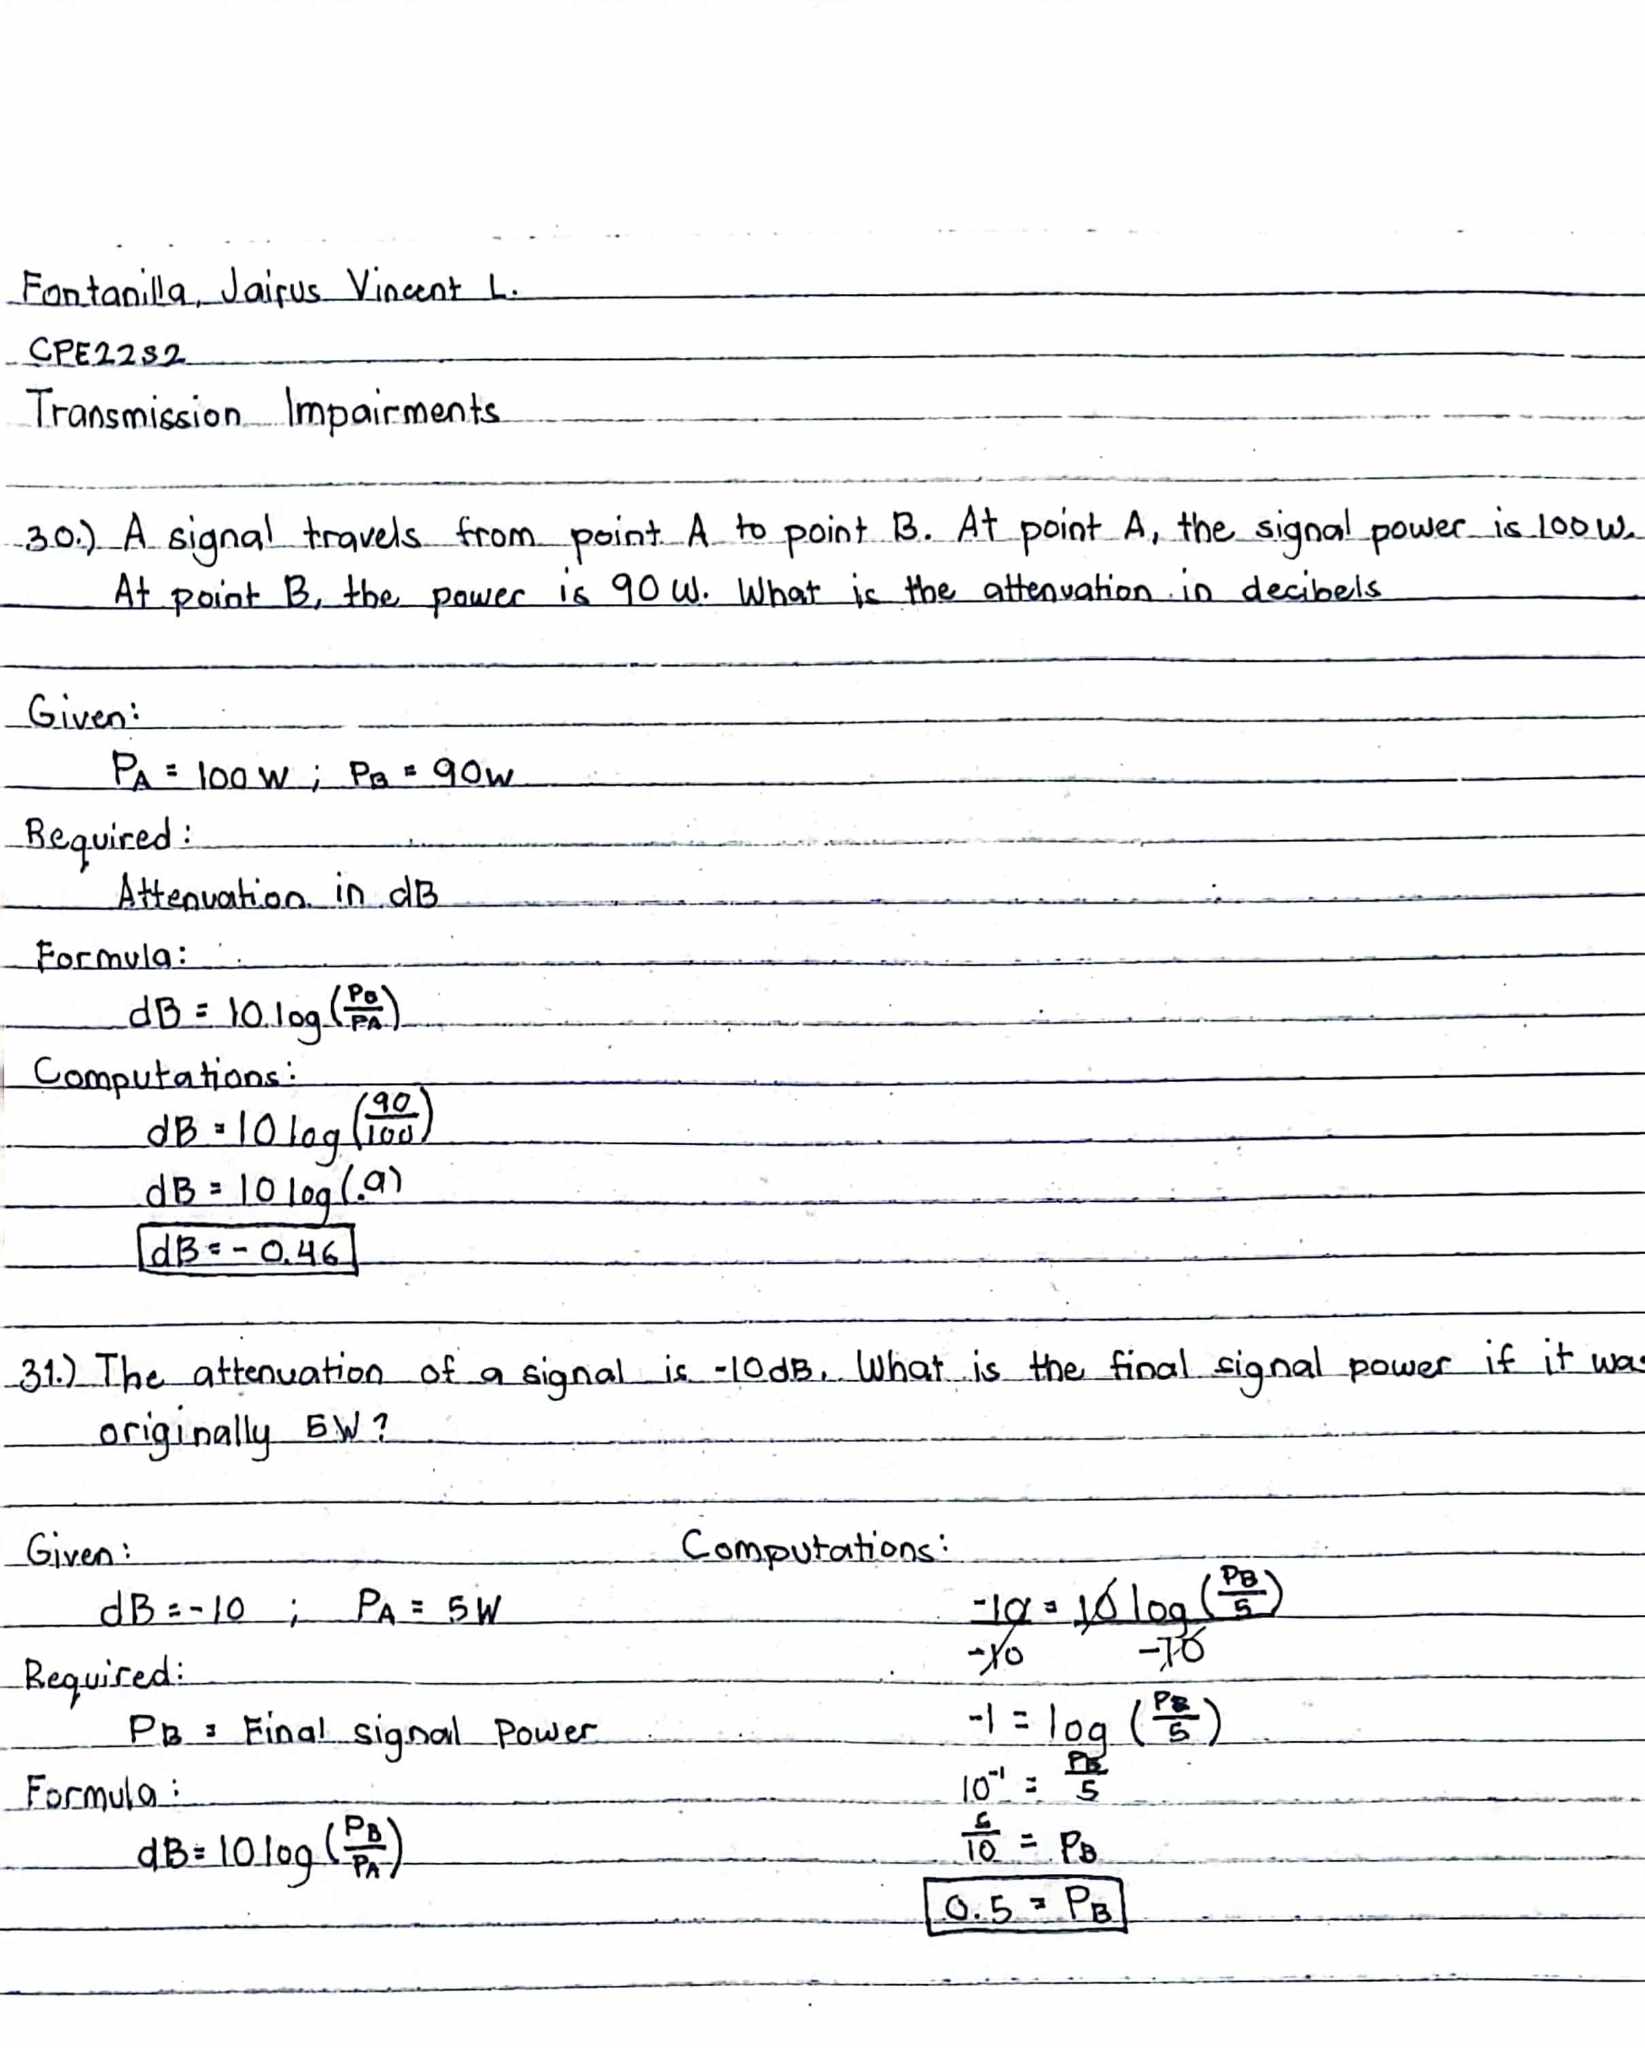 Fontanilla, Jairus Vincent L.
CPE22S2
Transmission Impairments
30.) A signal travels from point A to point B. At point A, the signal power is 100w.
At point B, the power is 90 W. What is the attenuation in decibels
Given:
PA = 100 W ; PB = 90w
Required:
Attenuation in dB
Formula:
dB = 10 log (PB/PA)
Computations:
dB = 10 log (90/100)
dB = 10 log (.9)
dB = - 0.46
31.) The attenuation of a signal is -10dB. What is the final signal power if it was
originally 5W?
Given:
dB = -10 ; PA = 5W
Required:
PB = Final signal Power
Formula:
dB = 10 log (PB/PA)
Computations:
-10 = 10 log (PB/5)
-10 -10
-1 = log (PB/5)
10⁻¹ = PB/5
5/10 = PB
0.5 = PB